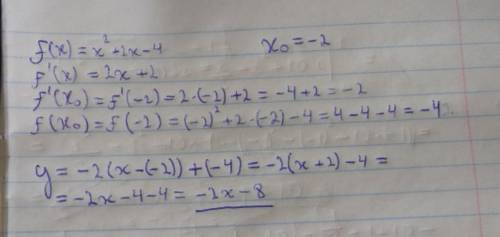 f(x) = x² + 2x - 4 x₀ = -2
f'(x) = 2x + 2
f'(x₀) = f'(-2) = 2·(-2) + 2 = -4 + 2 = -2
f(x₀) = f(-2) = (-2)² + 2·(-2) - 4 = 4 - 4 - 4 = -4
y = -2(x - (-2)) + (-4) = -2(x + 2) - 4 =
= -2x - 4 - 4 = -2x - 8